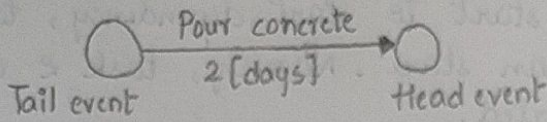 Pour concrete
2 [days]
Tail event
Head event